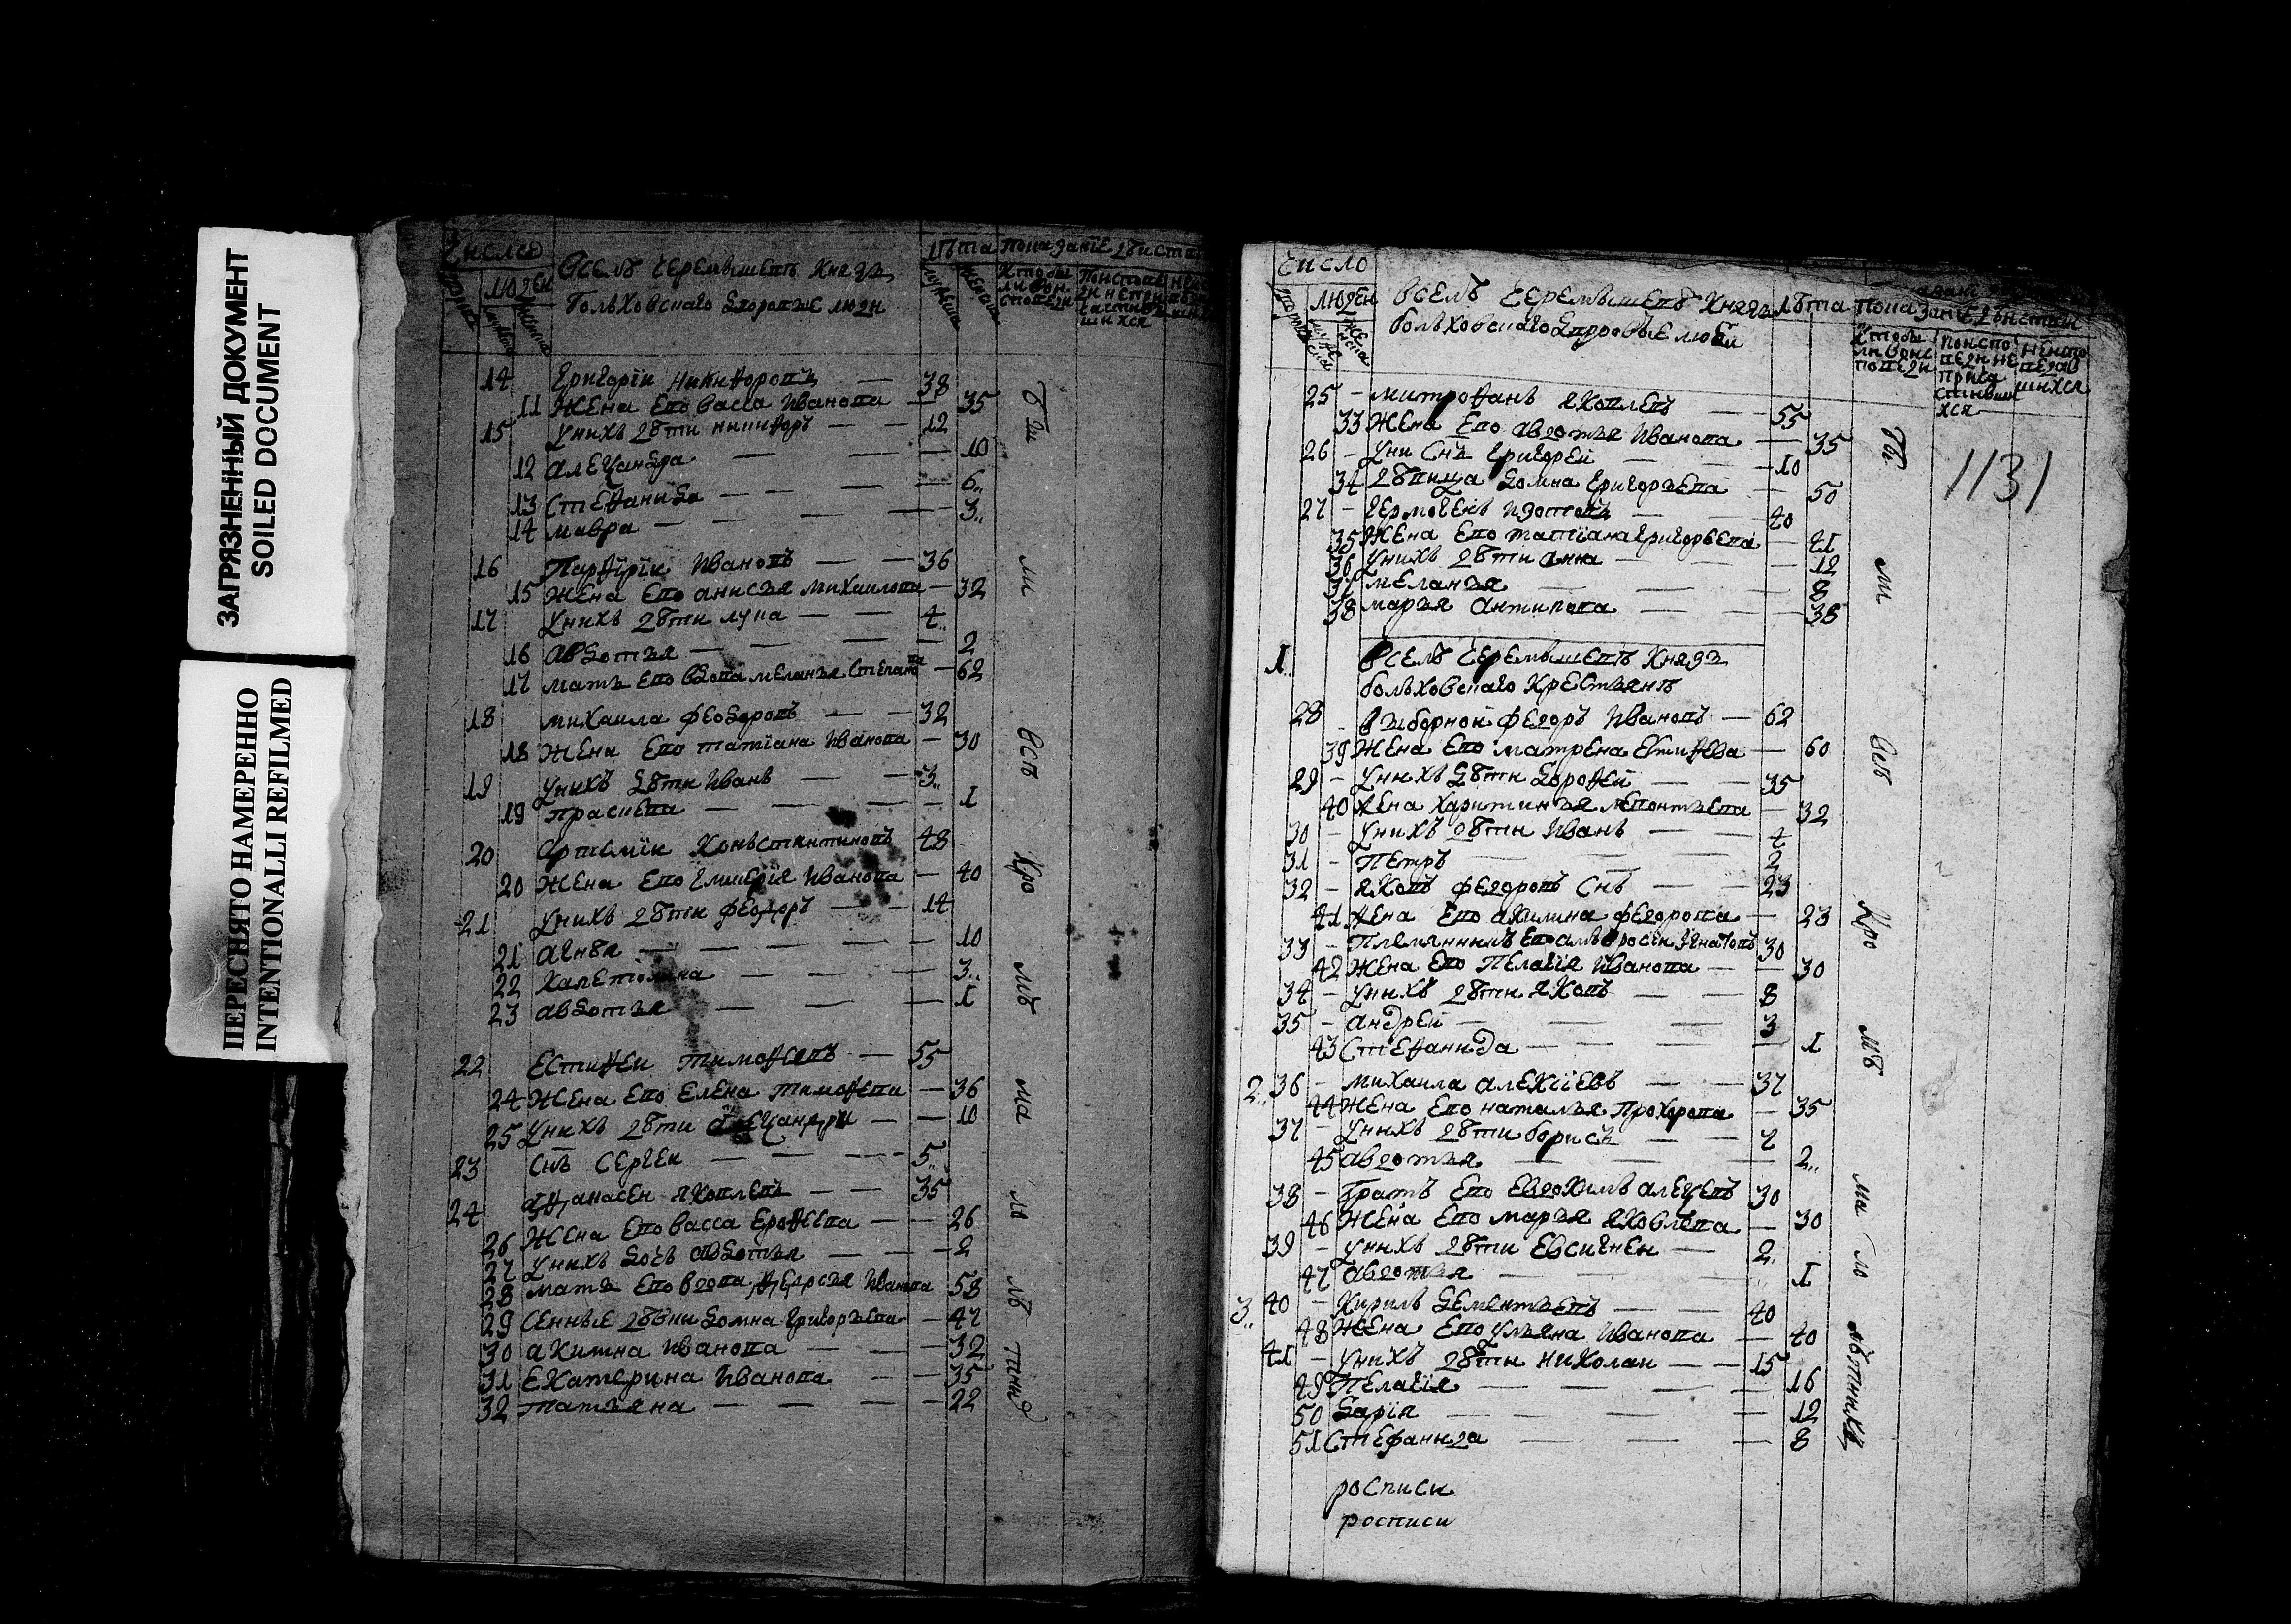 ЗАГРЯЗНЕННЫЙ ДОКУМЕНТ
SOILED DOCUMENT
ПЕРЕСНЯТО НАМЕРЕННО
INTENTIONALLI REFILMED
число
людей
Вселѣ Черемышевѣ Князь
Больховскаго дворовые люди
лѣта
14 Григорiи Никифоровъ 38
11 жена его васса Иванова 35
15 у нихъ дѣти никифоръ 12
12 алеѯандра 10
13 Стефанида 6
14 мавра 3
16 Парфiрiи Ивановъ 36
15 жена его анисья михаилова 32
17 у нихъ дѣти лупа 4
16 авдотья 2
17 мать его вдова меланья Степано ва 62
18 михаила феодоровъ 32
18 жена его татiана Иванова 30
19 у нихъ дѣти Иванъ 3
19 Прасковя 1
20 Артемiи Конъстантиновъ 48
20 жена его Гликерiя Иванова 40
21 у нихъ дѣти феодоръ 14
21 агнѣя 10
22 Капетолина 3
23 авдотья 1
22 Естифеи тимофеевъ 55
24 жена его Елена тимофева 36
25 у нихъ дѣти алеѯандра 10
23 Снъ Сергеи 5
24 афанасеи яковлевъ 35
26 жена его васса Ерофеева 26
27 у нихъ дочь авдотья 2
28 мать его вдова федосья Иванова 58
29 Сенные дѣвки домна Григорьева 47
30 акилина Иванова 32
31 Екатерина Иванова 35
32 татьяна 22
бы ли всѣ Кро мѣ ма ло лѣ тний
число
людей
Вселѣ Черемышевѣ Князь
больховскаго дворовые люди
лѣта показанiе дѣистви
1131
25 митрофанъ яковлевъ 55
33 жена его авдотья Иванова 35
26 у ни Снъ Григореи 10
34 дѣвица домна Григорьева 50
27 Гермогенъ Изотовъ 40
35 жена его татiана Григорьева 41
36 у нихъ дѣти анна 12
37 меланья 8
38 марья антипова 38
1 Вселѣ Черемышевѣ Князь
больховскаго Крестьянъ
28 выборной федоръ Ивановъ 62
39 жена его матрена Естифева 60
29 у нихъ дѣти дорофеи 35
40 жена харитинья леонтьева 32
30 у нихъ дѣти Иванъ 4
31 Петръ 2
32 яковъ федоровъ Снъ 23
41 жена его акилина федорова 23
33 племянникъ его амвросiи Игнатовъ 30
42 жена его Пелагiя Иванова 30
34 у нихъ дѣти яковъ 8
35 андреи 3
43 Стефанида 1
2 36 михаила алексiевъ 37
44 жена его наталья Прохорова 35
37 у нихъ дѣти борисъ 7
45 авдотья 2
38 братъ его Евдокимъ алеѯевъ 30
46 жена его марья яковлева 30
39 у нихъ дѣти Евсигнеи 2
47 авдотья 1
3 40 Кирилъ дементьевъ 40
48 жена его ульяна Иванова 40
41 у нихъ дѣти николаи 15
49 Пелагiя 16
50 дарiя 12
51 Стефанида 8
бы ли всѣ Кро мѣ ма ло лѣтнихъ
росписи
росписи